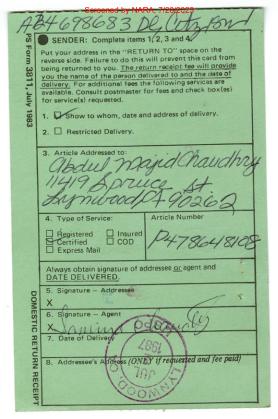 Screened by NARA, 7/26/2023
AB4698683 De
PS Form 3811, July 1983
SENDER: Complete items 1, 2, 3 and 4.
Put your address in the "RETURN TO" space on the
reverse side. Failure to do this will prevent this card from
being returned to you. The return receipt fee will provide
you the name of the person delivered to and the date of
delivery. For additional fees the following services are
available. Consult postmaster for fees and check box(es)
for service(s) requested.
1. Show to whom, date and address of delivery.
2. Restricted Delivery.
3. Article Addressed to:
Abdul Majid Chaudhry
11419 Spruce St
Lynwood 90262
4. Type of Service:
Article Number
Registered
Insured
Certified
COD
Express Mail
P478648108
Always obtain signature of addressee or agent and
DATE DELIVERED.
5. Signature – Addressee
X
6. Signature – Agent
X
7. Date of Delivery
8. Addressee's Address (ONLY if requested and fee paid)
LYNWOOD
JUL
1987
DOMESTIC RETURN RECEIPT